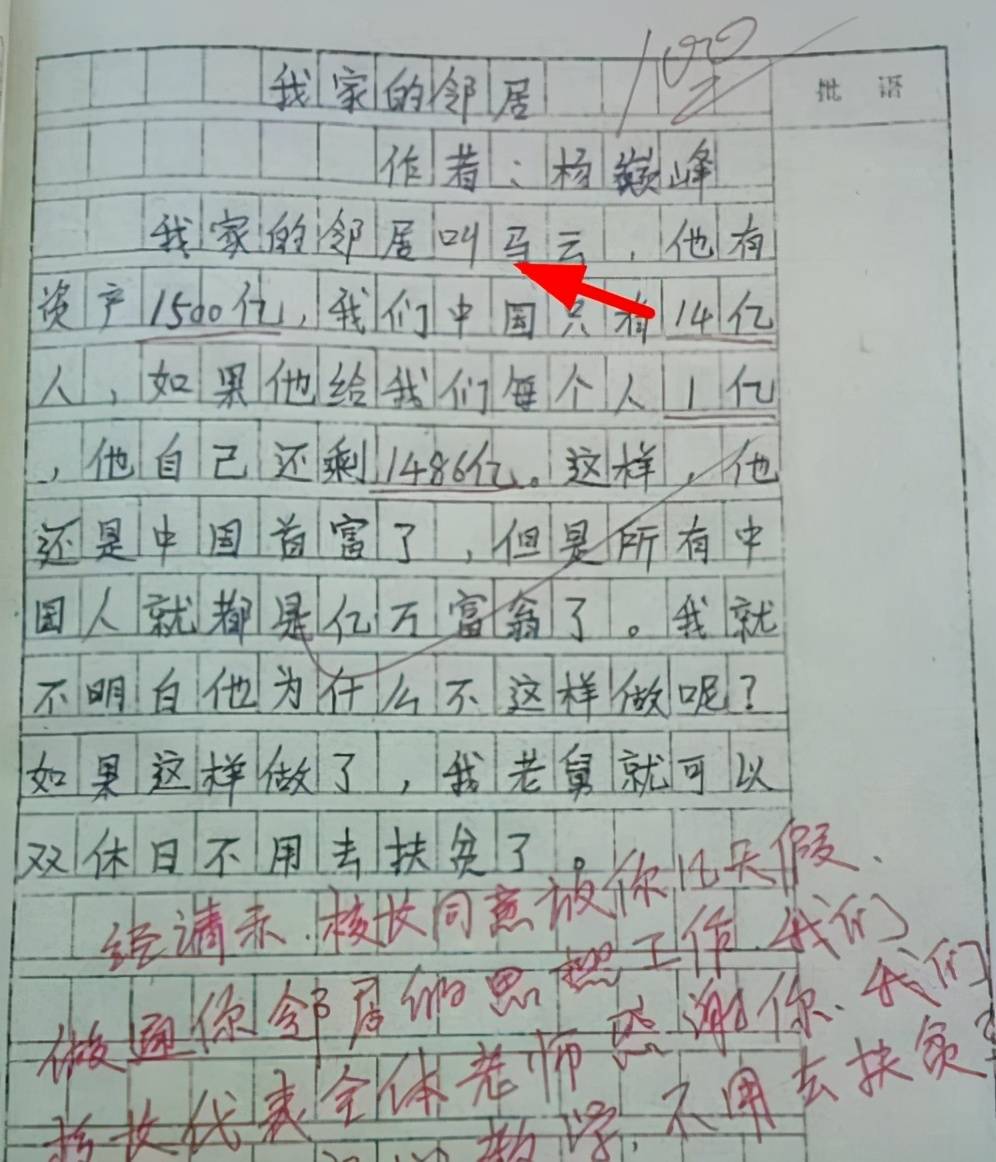 100
我家的邻居
批语
作者:杨巅峰
我家的邻居叫马云,他有
资产1500亿,我们中国只有14亿
人,如果他给我们每个人1亿
,他自己还剩1486亿。这样,他
还是中国首富了,但是所有中
国人就都是亿万富翁了。我就
不明白他为什么不这样做呢?
如果这样做了,我老舅就可以
双休日不用去扶贫了。
经请示.校长同意放你几天假、
做通你邻居的思想工作 我们
感谢你、我们
学校代表全体老师
教学,不用去扶贫